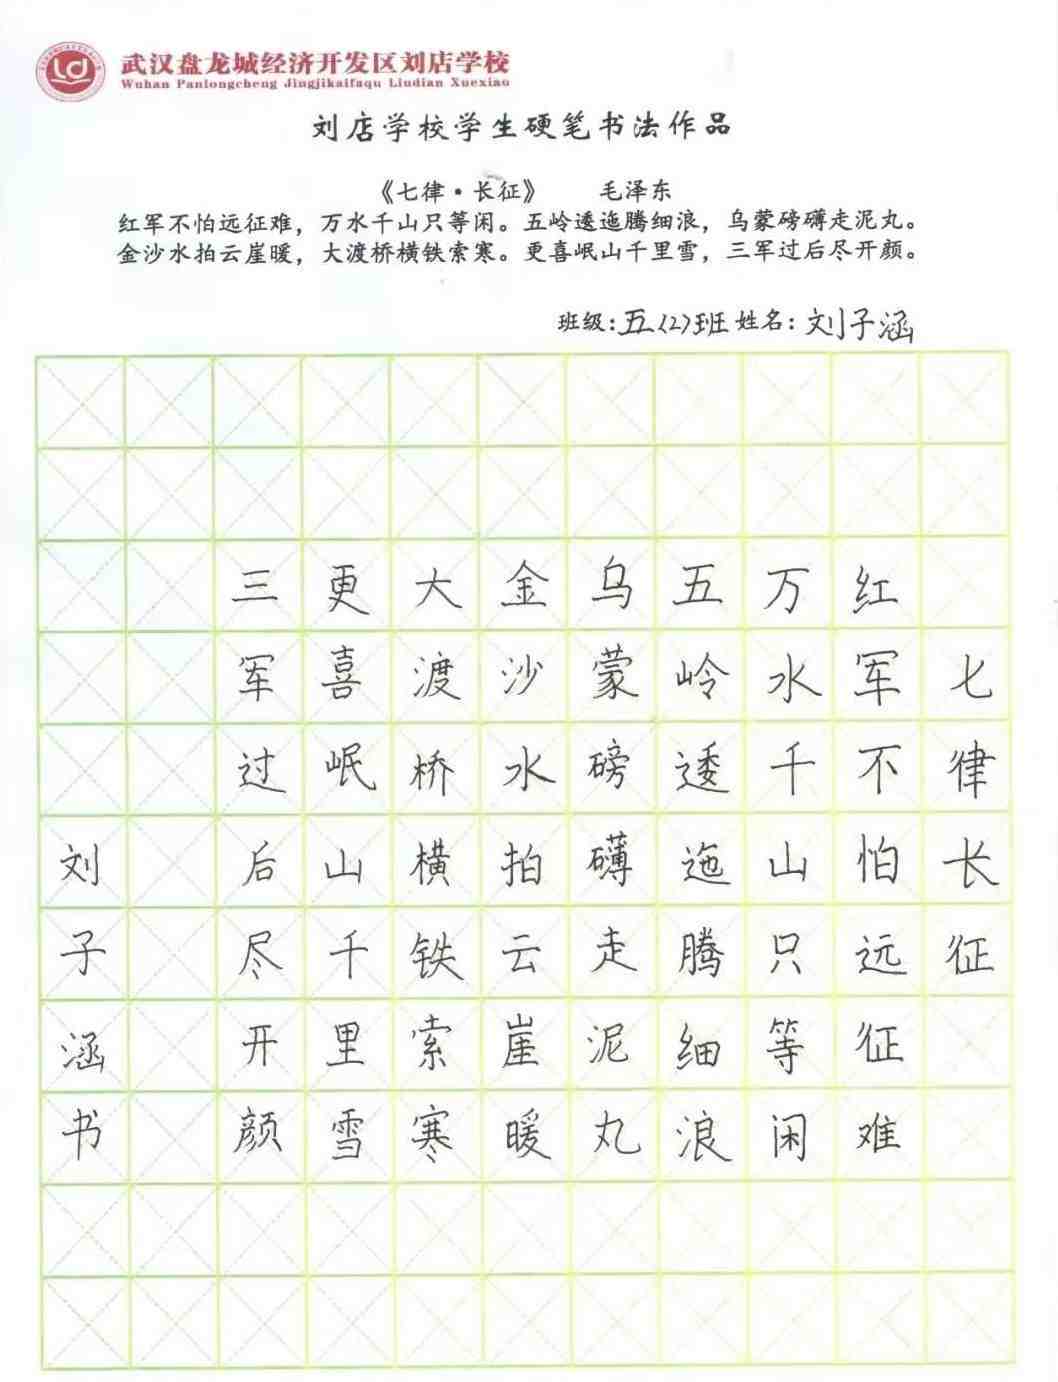 武汉盘龙城经济开发区刘店学校
Wuhan Panlongcheng Jingjikaifaqu Liudian Xuexiao
刘店学校学生硬笔书法作品
《七律·长征》 毛泽东
红军不怕远征难，万水千山只等闲。五岭逶迤腾细浪，乌蒙磅礴走泥丸。
金沙水拍云崖暖，大渡桥横铁索寒。更喜岷山千里雪，三军过后尽开颜。
班级：五〈2〉班 姓名：刘子涵
七律长征
红军不怕远征难
万水千山只等闲
五岭逶迤腾细浪
乌蒙磅礴走泥丸
金沙水拍云崖暖
大渡桥横铁索寒
更喜岷山千里雪
三军过后尽开颜
刘子涵书